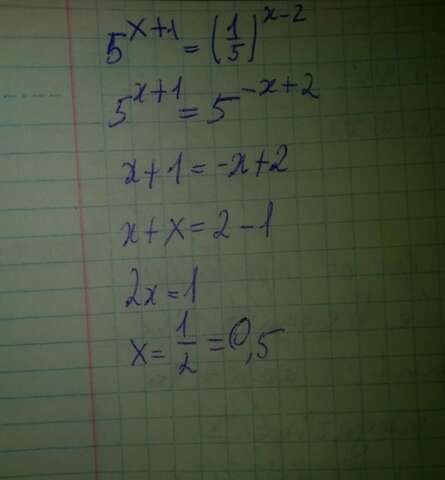 5^{x+1} = (1/5)^{x-2}
5^{x+1} = 5^{-x+2}
x+1=-x+2
x+x=2-1
2x=1
x=1/2=0,5